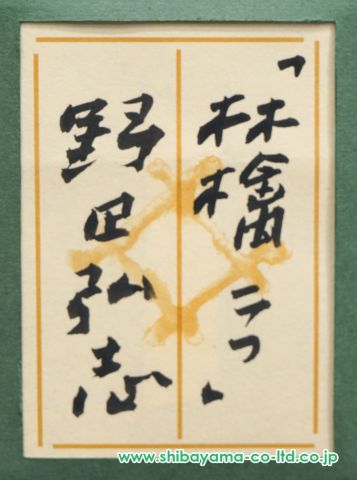 「林檎二つ」
野田弘志
www.shibayama-co-ltd.co.jp